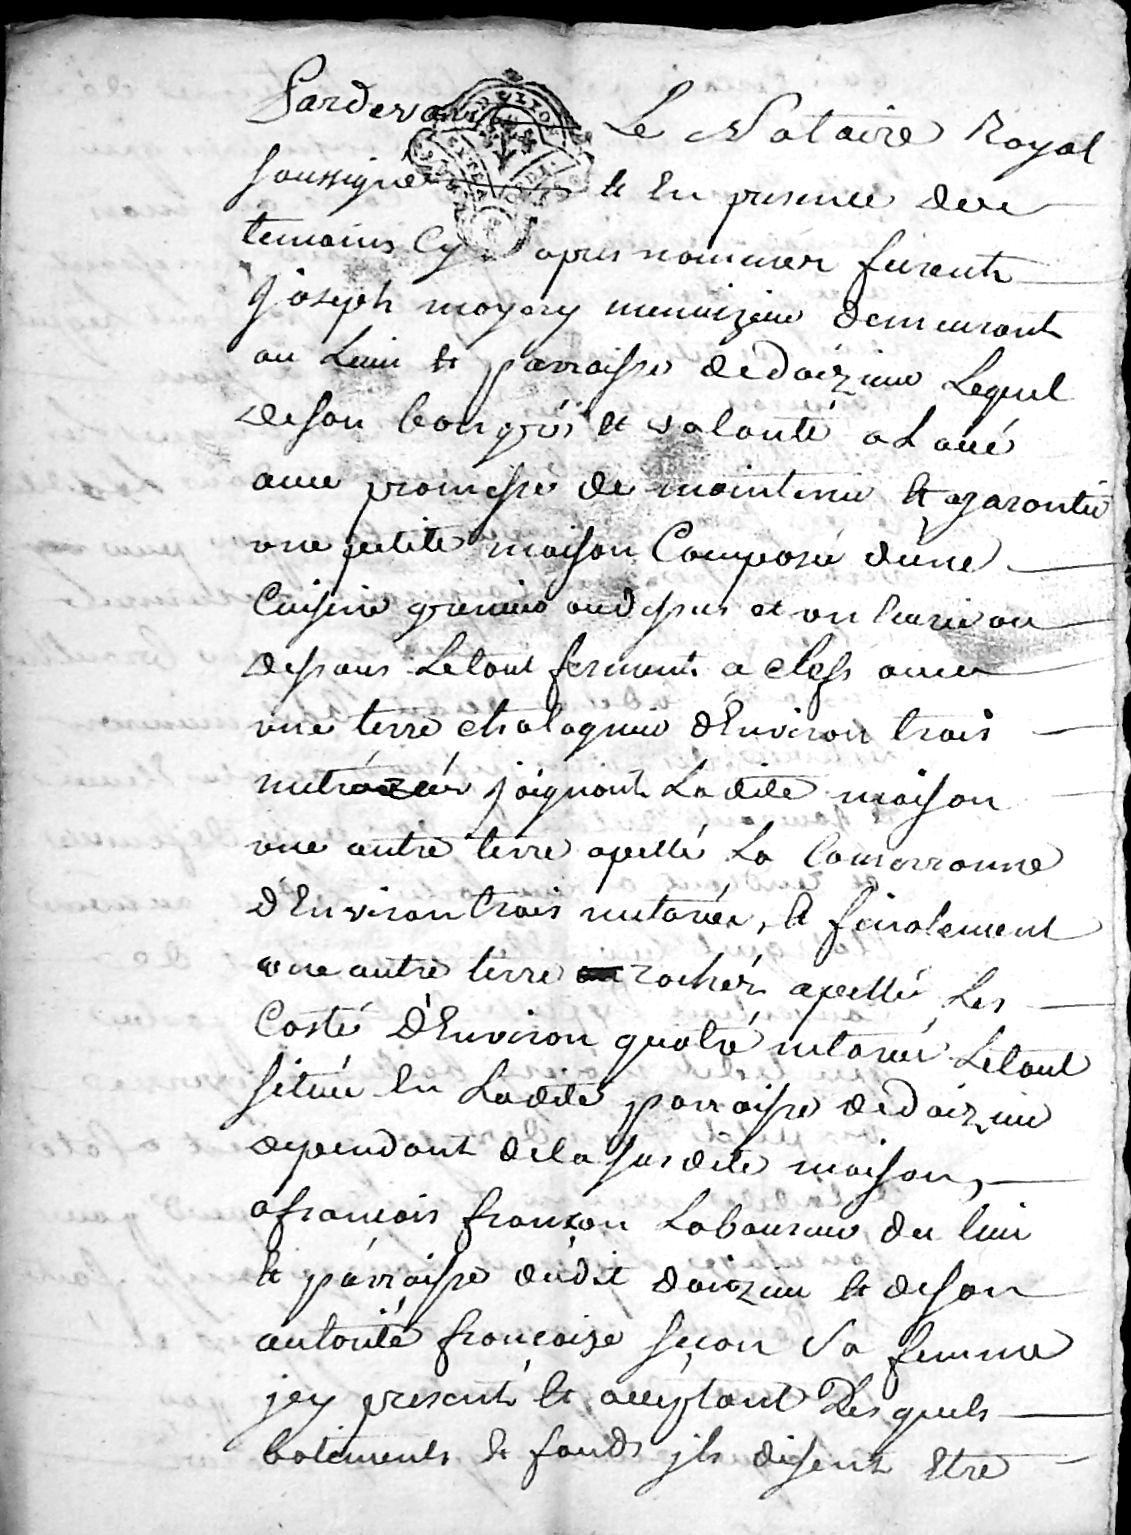 Pardevant Le Notaire Royal
soussigné & En presence des
temoins Cy apres nommer furent
Joseph moyery menuizeur demeurant
au Lieu & parroisse dedoizieu Lequel
deson bon gré & volonté a Loué
avec promesse de maintenir & garantir
une petite maison Composée dune
Cuisine grenier audessus et un Curie au
dessous Letout fermant a clefs avec
une terre chatagnier d'Environ trois
metérée joignant Ladite maison
une autre terre apellé La Couvoronne
d'Environ trois metaréé, & finalement
une autre terre rochér apellé Les
Costé d'Environ quatré metaréé Letout
situés En Ladite parroisse dedoizieu
dependant dela susdite maison,
a francois françon Laboureur du lieu
& parroisse dudit doizieu & deson
autorité francoize seçon Sa femme
jcy present & acceptant Desquels
batiments & fonds jls disent Etre